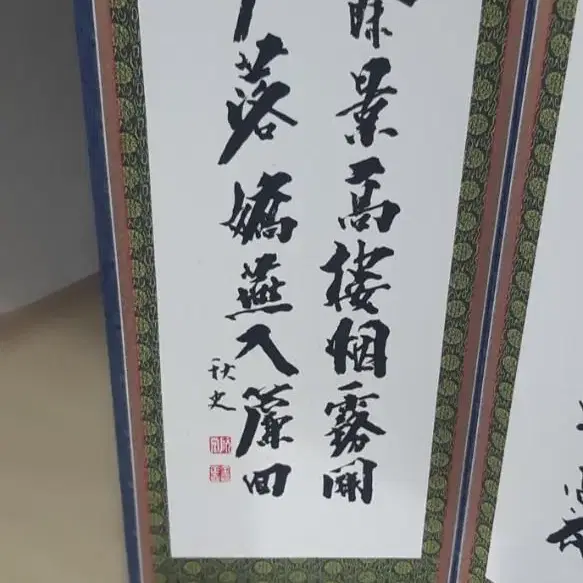 景高樓烟霧開
落嬌燕入簾回
秋史